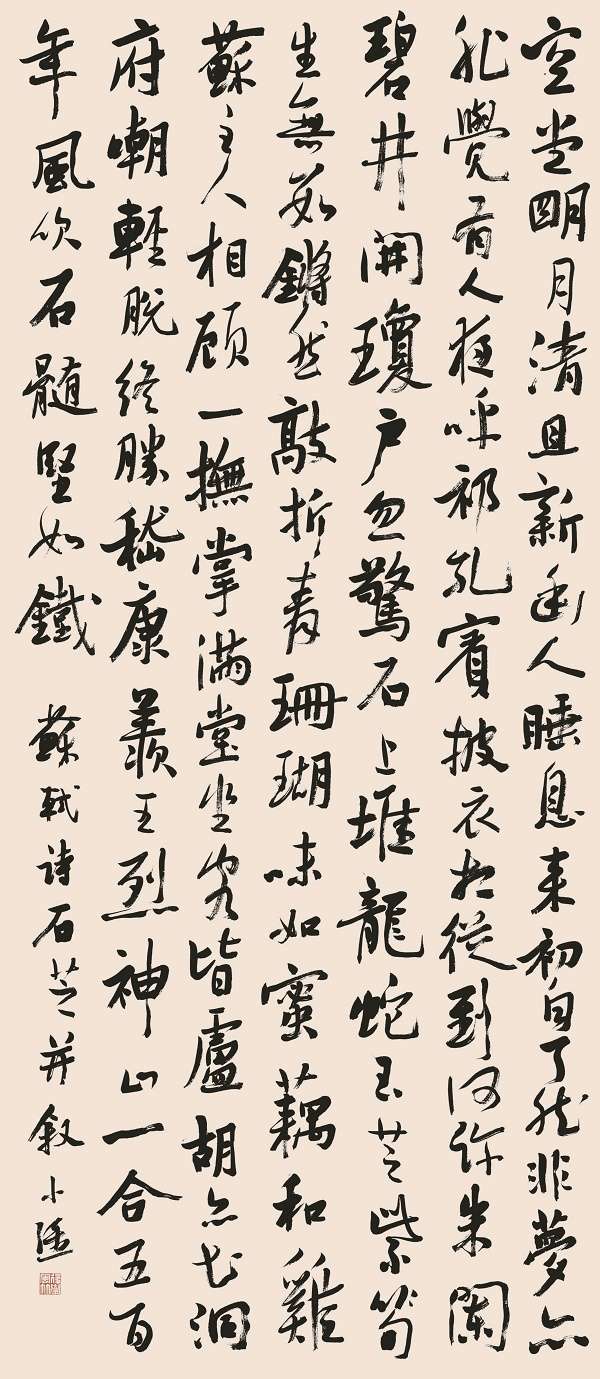 空堂明月清且新幽人睡息来初匀了然非夢亦
非覺有人夜呼祁孔賓披衣相從到何許朱闌
碧井開瓊戶忽驚石上堆龍蛇玉芝紫筍
生無數鏘然敲折青珊瑚味如蜜藕和雞
蘇主人相顧一撫掌滿堂坐客皆盧胡亦知洞
府嘲輕脱終勝嵇康羨王烈神山一合五百
年風吹石髓堅如鐵
蘇軾詩石芝并叙小